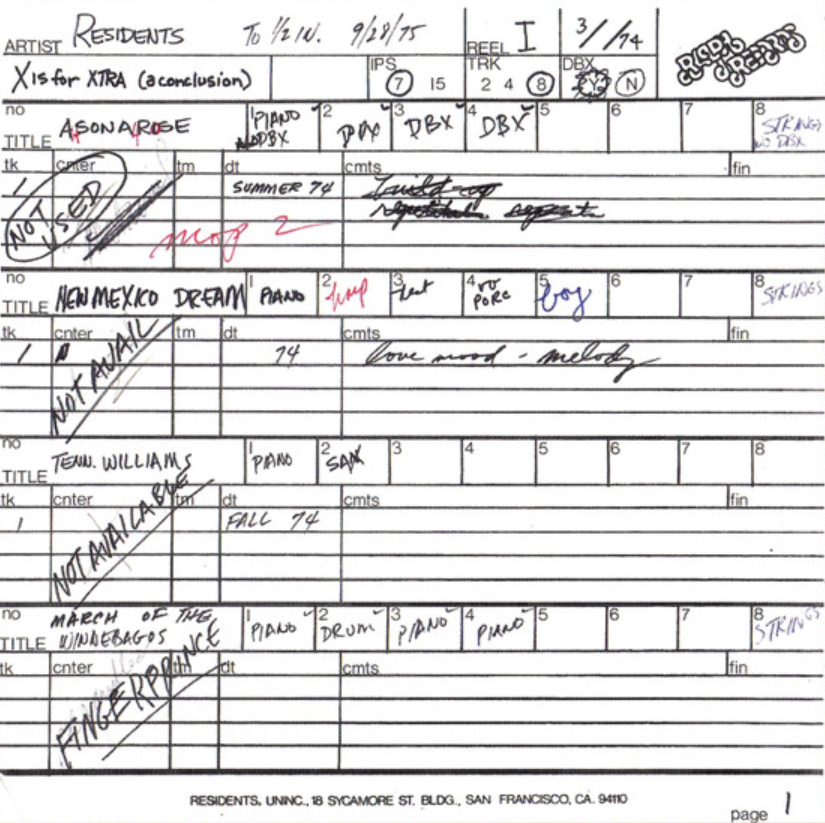 ARTIST RESIDENTS TO 1/2 IN. 9/28/75 REEL I 3/ /74 RALPH RECORDS
X IS for XTRA (a conclusion) IPS 7 15 TRK 2 4 8 DBX Y N
no TITLE ASONAROSE 1 PIANO NO DBX 2 DBX 3 DBX 4 DBX 5 6 7 8 STRINGS NO DBX
tk cnter tm dt cmts fin
1 NOT USED SUMMER 74
no TITLE NEW MEXICO DREAM 1 PIANO 2 3 4 PORC 5 6 7 8 STRINGS
tk cnter tm dt cmts fin
1 NOT AVAIL 74 love mood - melody
no TITLE TENN. WILLIAMS 1 PIANO 2 SAX 3 4 5 6 7 8
tk cnter tm dt cmts fin
1 NOT AVAILABLE FALL 74
no TITLE MARCH OF THE WINNEBAGOS 1 PIANO 2 DRUM 3 PIANO 4 PIANO 5 6 7 8 STRINGS
tk cnter tm dt cmts fin
FINGERPRINCE
RESIDENTS, UNINC., 18 SYCAMORE ST. BLDG., SAN FRANCISCO, CA. 94110
page 1